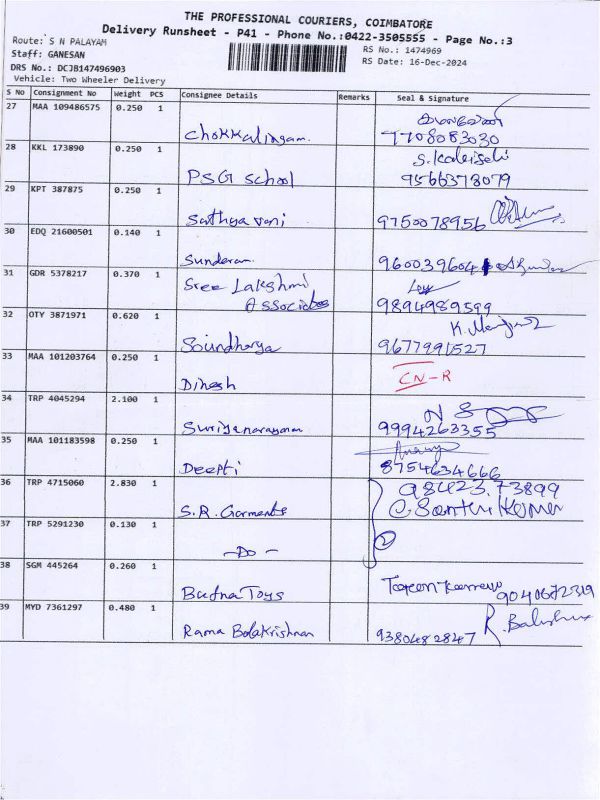 THE PROFESSIONAL COURIERS, COIMBATORE
Delivery Runsheet - P41 - Phone No.:0422-3505555 - Page No.:3
Route: S N PALAYAM
RS No.: 1474969
Staff: GANESAN
RS Date: 16-Dec-2024
DRS No.: DCJB147496903
Vehicle: Two Wheeler Delivery
S No Consignment No Weight PCS Consignee Details Remarks Seal & Signature
27 MAA 109486575 0.250 1
Chokkalingam 7708083030
28 KKL 173890 0.250 1
PSG School 9566378079
29 KPT 387875 0.250 1
Sathya vani 9750078956
30 EDQ 21600501 0.140 1
Sunderam 960039604
31 GDR 5378217 0.370 1 Sree Lakshmi
Associates 9894989599
32 OTY 3871971 0.620 1
Soundharya 9677991527
33 MAA 101203764 0.250 1
Dinesh CN-R
34 TRP 4045294 2.100 1
Suriyanarayanan 9994263355
35 MAA 101183598 0.250 1
Deepti 8754634666
36 TRP 4715060 2.830 1 98423.73899
S.R. Garments C. Santhi Kumar
37 TRP 5291230 0.130 1
-Do- 2
38 SGM 445264 0.260 1
Toys 9040672319
39 MYD 7361297 0.480 1
Rama Balakrishnan 9380482847